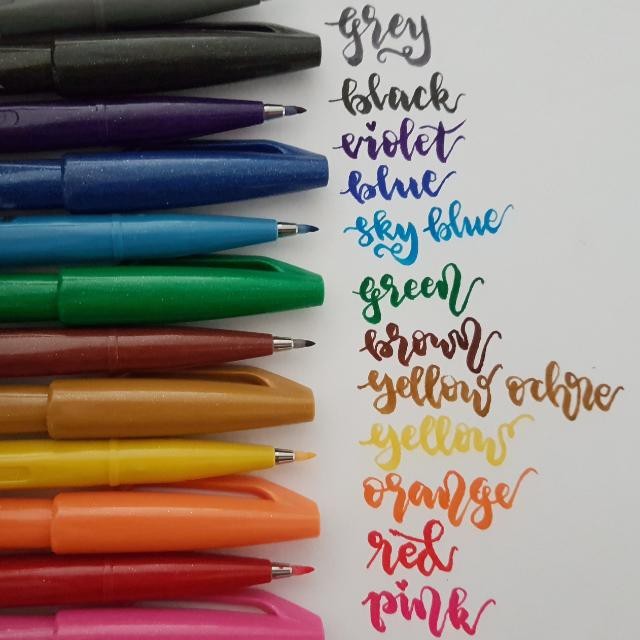 grey
black
violet
blue
sky blue
green
brown
yellow ochre
yellow
orange
red
pink